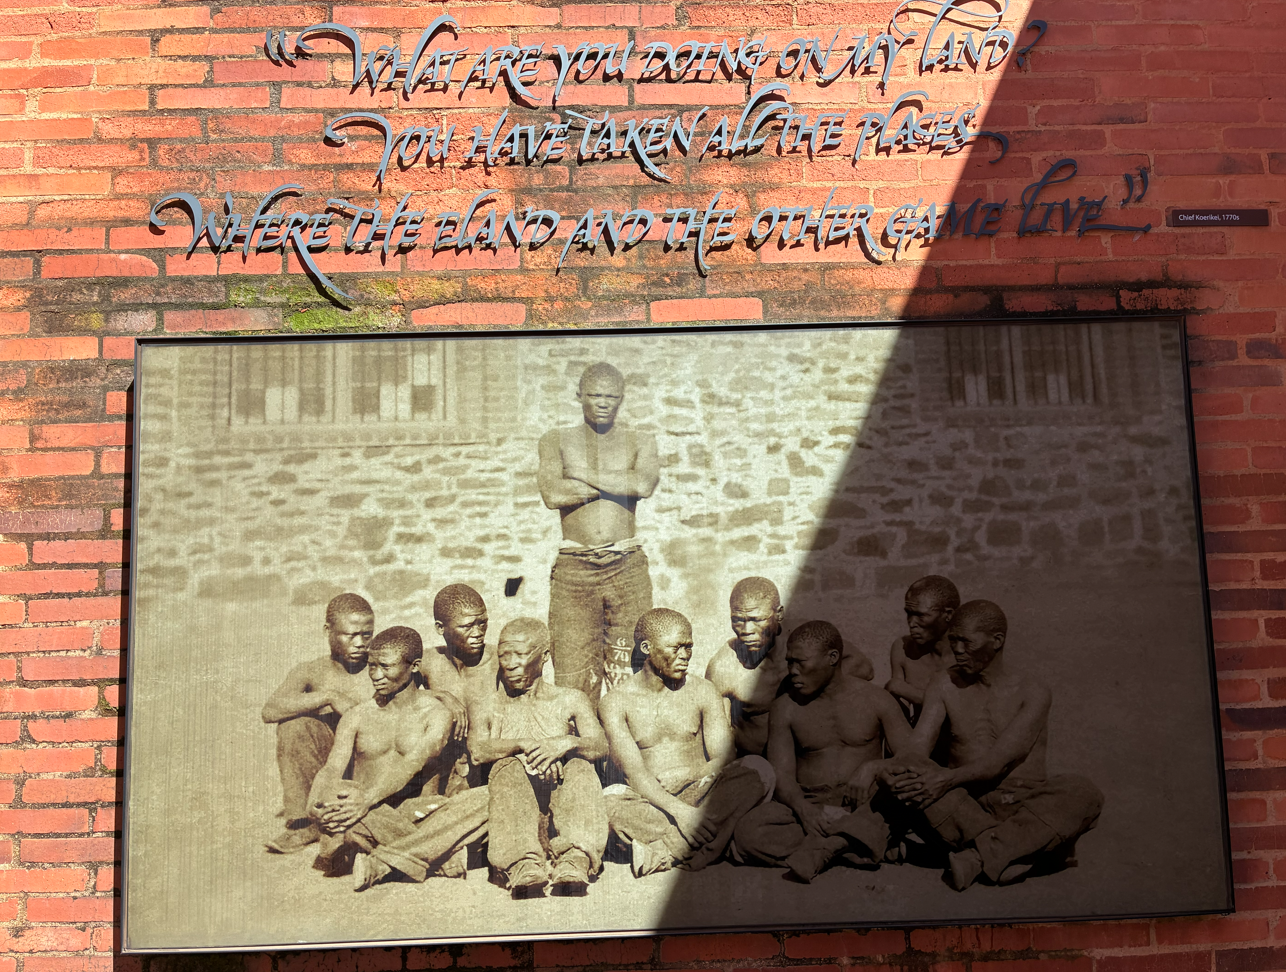 “WHAT ARE YOU DOING ON MY LAND?
YOU HAVE TAKEN ALL THE PLACES
WHERE THE ELAND AND THE OTHER GAME LIVE”
Chief Koerikei, 1770s
6
70